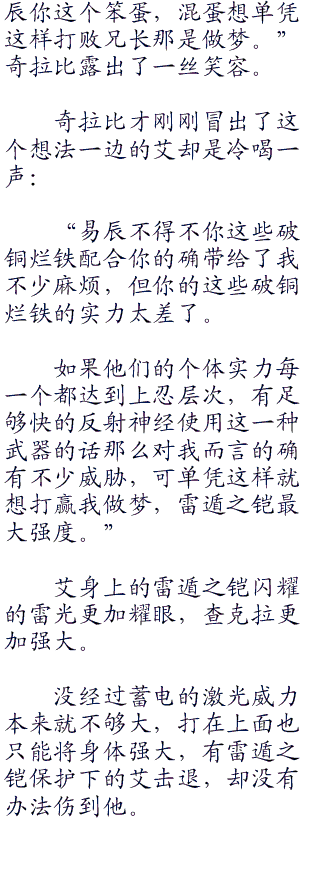 辰你这个笨蛋，混蛋想单凭
这样打败兄长那是做梦。”
奇拉比露出了一丝笑容。
奇拉比才刚刚冒出了这
个想法一边的艾却是冷喝一
声：
“易辰不得不你这些破
铜烂铁配合你的确带给了我
不少麻烦，但你的这些破铜
烂铁的实力太差了。
如果他们的个体实力每
一个都达到上忍层次，有足
够快的反射神经使用这一种
武器的话那么对我而言的确
有不少威胁，可单凭这样就
想打赢我做梦，雷遁之铠最
大强度。”
艾身上的雷遁之铠闪耀
的雷光更加耀眼，查克拉更
加强大。
没经过蓄电的激光威力
本来就不够大，打在上面也
只能将身体强大，有雷遁之
铠保护下的艾击退，却没有
办法伤到他。